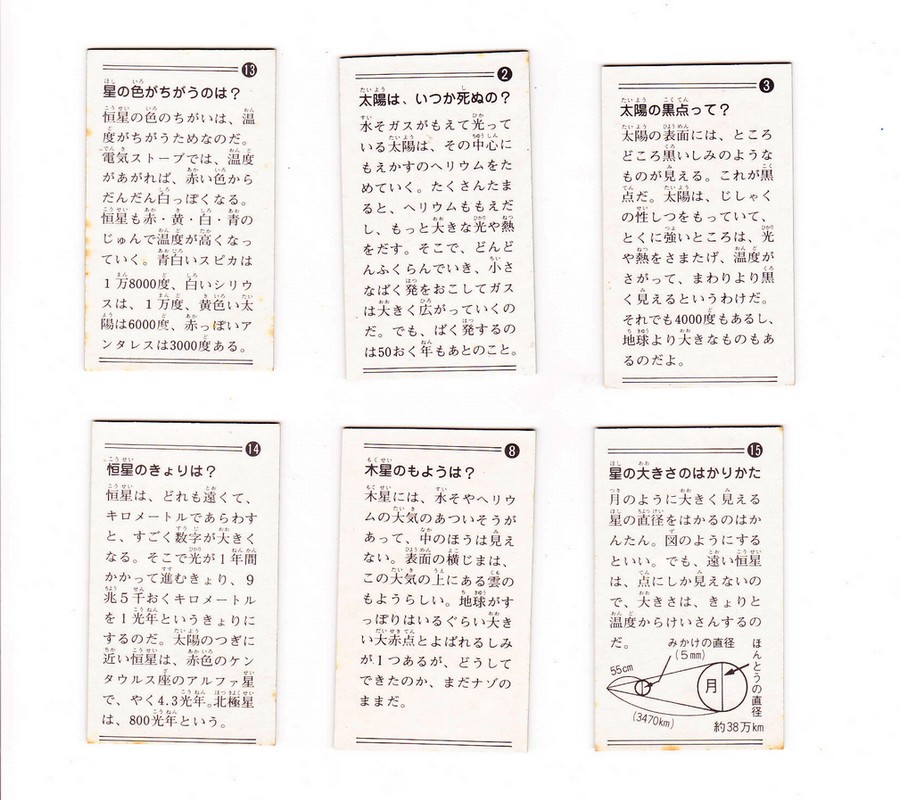 13
星の色がちがうのは？
恒星の色のちがいは、温
度がちがうためなのだ。
電気ストーブでは、温度
があがれば、赤い色から
だんだん白っぽくなる。
恒星も赤・黄・白・青の
じゅんで温度が高くなっ
ていく。青白いスピカは
1万8000度、白いシリウ
スは、1万度、黄色い太
陽は6000度、赤っぽいア
ンタレスは3000度ある。
2
太陽は、いつか死ぬの？
水そガスがもえて光って
いる太陽は、その中心に
もえかすのヘリウムをた
めていく。たくさんたま
ると、ヘリウムももえだ
し、もっと大きな光や熱
をだす。そこで、どんど
んふくらんでいき、小さ
なばく発をおこしてガス
は大きく広がっていくの
だ。でも、ばく発するの
は50おく年もあとのこと。
3
太陽の黒点って？
太陽の表面には、ところ
どころ黒いしみのような
ものが見える。これが黒
点だ。太陽は、じしゃく
の性しつをもっていて、
とくに強いところは、光
や熱をさまたげ、温度が
さがって、まわりより黒
く見えるというわけだ。
それでも4000度もあるし、
地球より大きなものもあ
るのだよ。
14
恒星のきょりは？
恒星は、どれも遠くて、
キロメートルであらわす
と、すごく数字が大きく
なる。そこで光が1年間
かかって進むきょり、9
兆5千おくキロメートル
を1光年というきょりに
するのだ。太陽のつぎに
近い恒星は、赤色のケン
タウルス座のアルファ星
で、やく4.3光年。北極星
は、800光年という。
8
木星のもようは？
木星には、水そやヘリウ
ムの大気のあついそうが
あって、中のほうは見え
ない。表面の横じまは、
この大気の上にある雲の
もようらしい。地球がす
っぽりはいるぐらい大き
い大赤点とよばれるしみ
が1つあるが、どうして
できたのか、まだナゾの
ままだ。
15
星の大きさのはかりかた
月のように大きく見える
星の直径をはかるのはか
んたん。図のようにする
といい。でも、遠い恒星
は、点にしか見えないの
で、大きさは、きょりと
温度からけいさんするの
だ。
みかけの直径
(5mm)
55cm
月
ほんとうの直径
(3470km)
約38万km